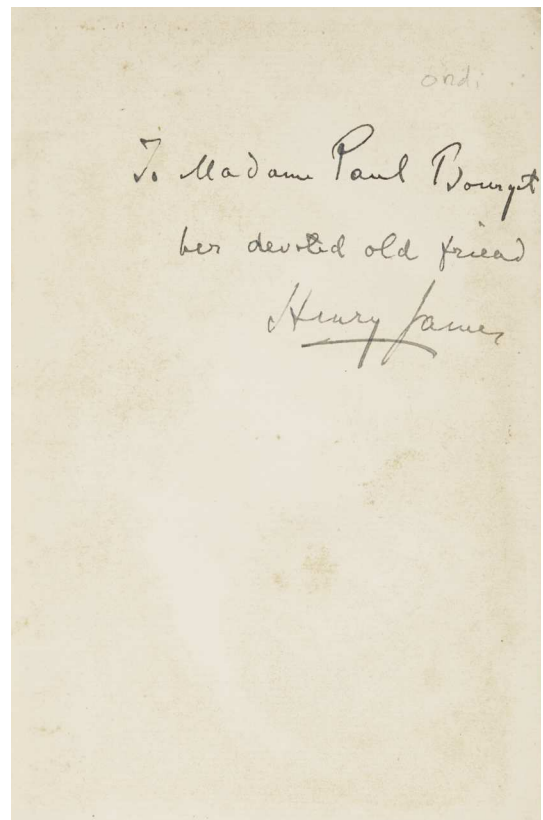 To Madame Paul Bourget
her devoted old friend
Henry James